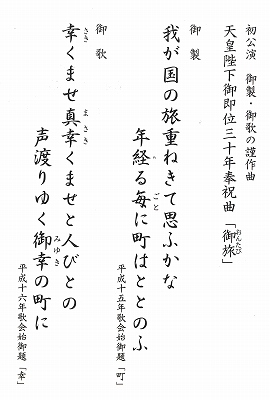 初公演　御製・御歌の謹作曲
天皇陛下御即位三十年奉祝曲「御旅」
おんたび
御製
我が国の旅重ねきて思ふかな
年経る毎に町はととのふ
ごと
平成十五年歌会始御題「町」
御歌
幸くませ真幸くませと人びとの
さき
まさき
声渡りゆく御幸の町に
みゆき
平成十六年歌会始御題「幸」